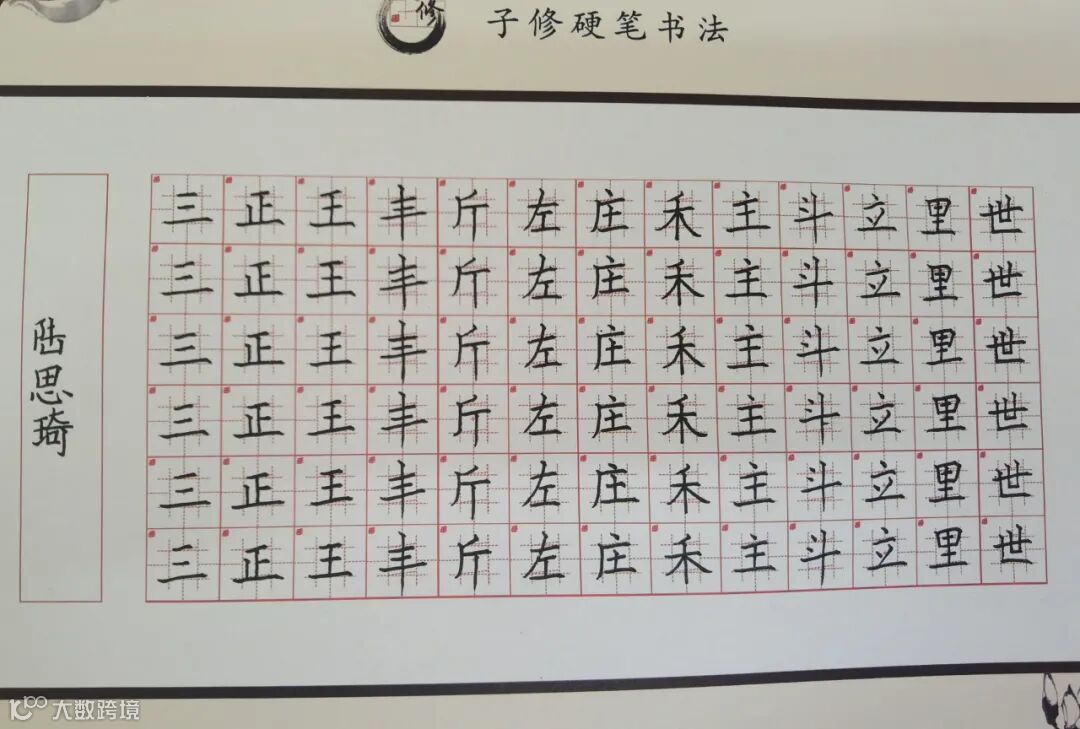 修
子修硬笔书法
三正王丰斤左庄禾主斗立里世
三正王丰斤左庄禾主斗立里世
三正王丰斤左庄禾主斗立里世
三正王丰斤左庄禾主斗立里世
三正王丰斤左庄禾主斗立里世
三正王丰斤左庄禾主斗立里世
陆思琦
大数跨境